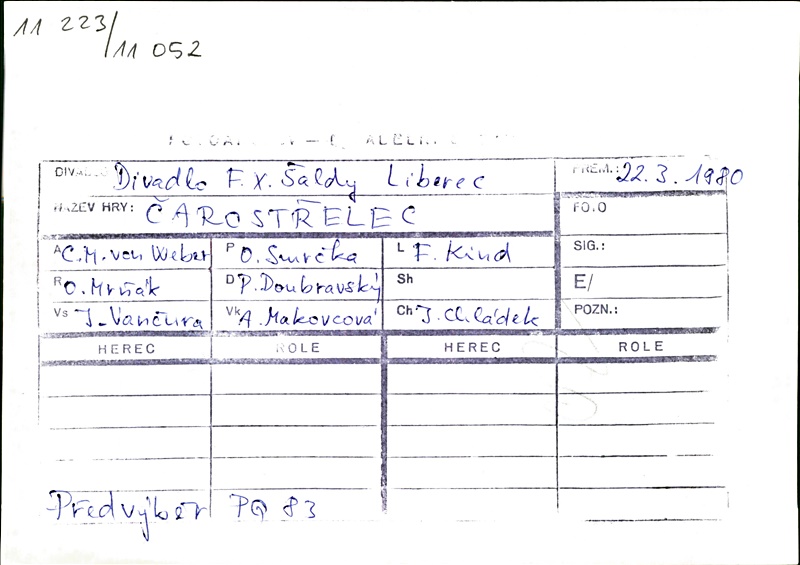 11 223/
11 052
DIVADLO Divadlo F. X. Šaldy Liberec PREM.: 22. 3. 1980
NÁZEV HRY: ČAROSTŘELEC FOTO
A C. M. von Weber P O. Smrčka L F. Kind SIG.:
R O. Mrňák D P. Doubravský Sh E/
Vs J. Vančura Vk A. Makovcová Ch J. Chládek POZN.:
HEREC ROLE HEREC ROLE
Předvýběr PQ 83